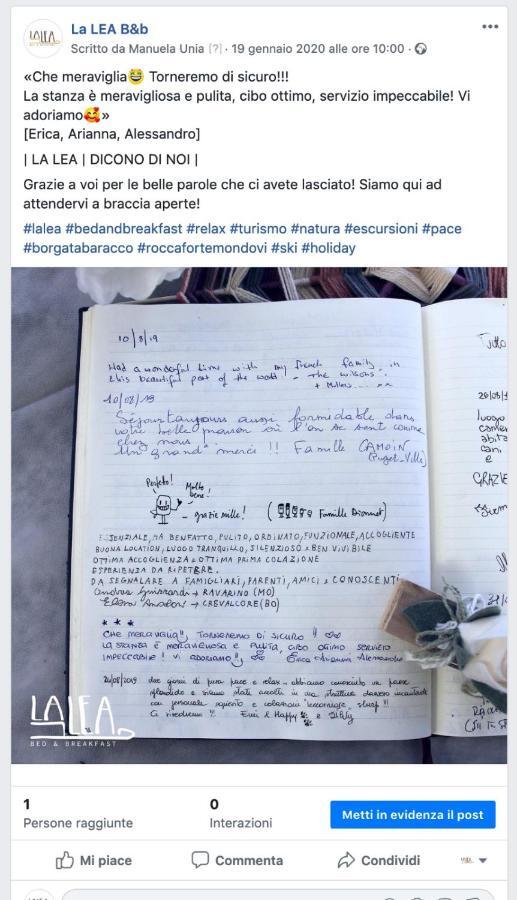 La LEA B&b
Scritto da Manuela Unia [?] · 19 gennaio 2020 alle ore 10:00 ·
«Che meraviglia😄 Torneremo di sicuro!!!
La stanza è meravigliosa e pulita, cibo ottimo, servizio impeccabile! Vi
adoriamo🥰»
[Erica, Arianna, Alessandro]
| LA LEA | DICONO DI NOI |
Grazie a voi per le belle parole che ci avete lasciato! Siamo qui ad
attendervi a braccia aperte!
#lalea #bedandbreakfast #relax #turismo #natura #escursioni #pace
#borgatabaracco #roccafortemondovi #ski #holiday
10/8/19
Had a wonderful time with my french family, in
this beautiful part of the world - The Wilsons.
10/08/19
Séjour toujours aussi formidable dans
votre belle maison où l'on se sent comme
chez nous !
Un grand merci !! Famille CAMOIN
(Puget-Ville)
Perfeto! Molto
bene!
- grazie mille! ( Famille
ESSENZIALE, MA BENFATTO, PULITO, ORDINATO, FUNZIONALE, ACCOGLIENTE
BUONA LOCATION, LUOGO TRANQUILLO, SILENZIOSO E BEN VIVIBILE
OTTIMA ACCOGLIENZA E OTTIMA PRIMA COLAZIONE
ESPERIENZA DA RIPETERE.
DA SEGNALARE A FAMIGLIARI, PARENTI, AMICI E CONOSCENTI
→ RAVARINO (MO)
→ CREVALCORE (BO)
* * *
CHE MERAVIGLIA!! TORNEREMO DI SICURO !!
LA STANZA È MERAVIGLIOSA E PULITA, CIBO OTTIMO SERVIZIO
IMPECCABILE! VI ADORIAMO! Erica Arianna Alessandro
24/08/2019 due giorni di pura pace e relax - abbiamo conosciuto un paese
splendido e siamo state accolte in una struttura davvero incantevole
con personale squisito e colazioni
Ci rivedremo !! & Happy e
Tutto
luogo
GRAZIE
LALEA
BED & BREAKFAST
1
Persone raggiunte
0
Interazioni
Metti in evidenza il post
Mi piace
Commenta
Condividi